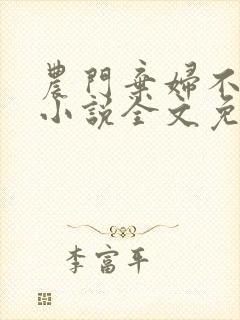 農門棄婦不
小說全文免
李富平